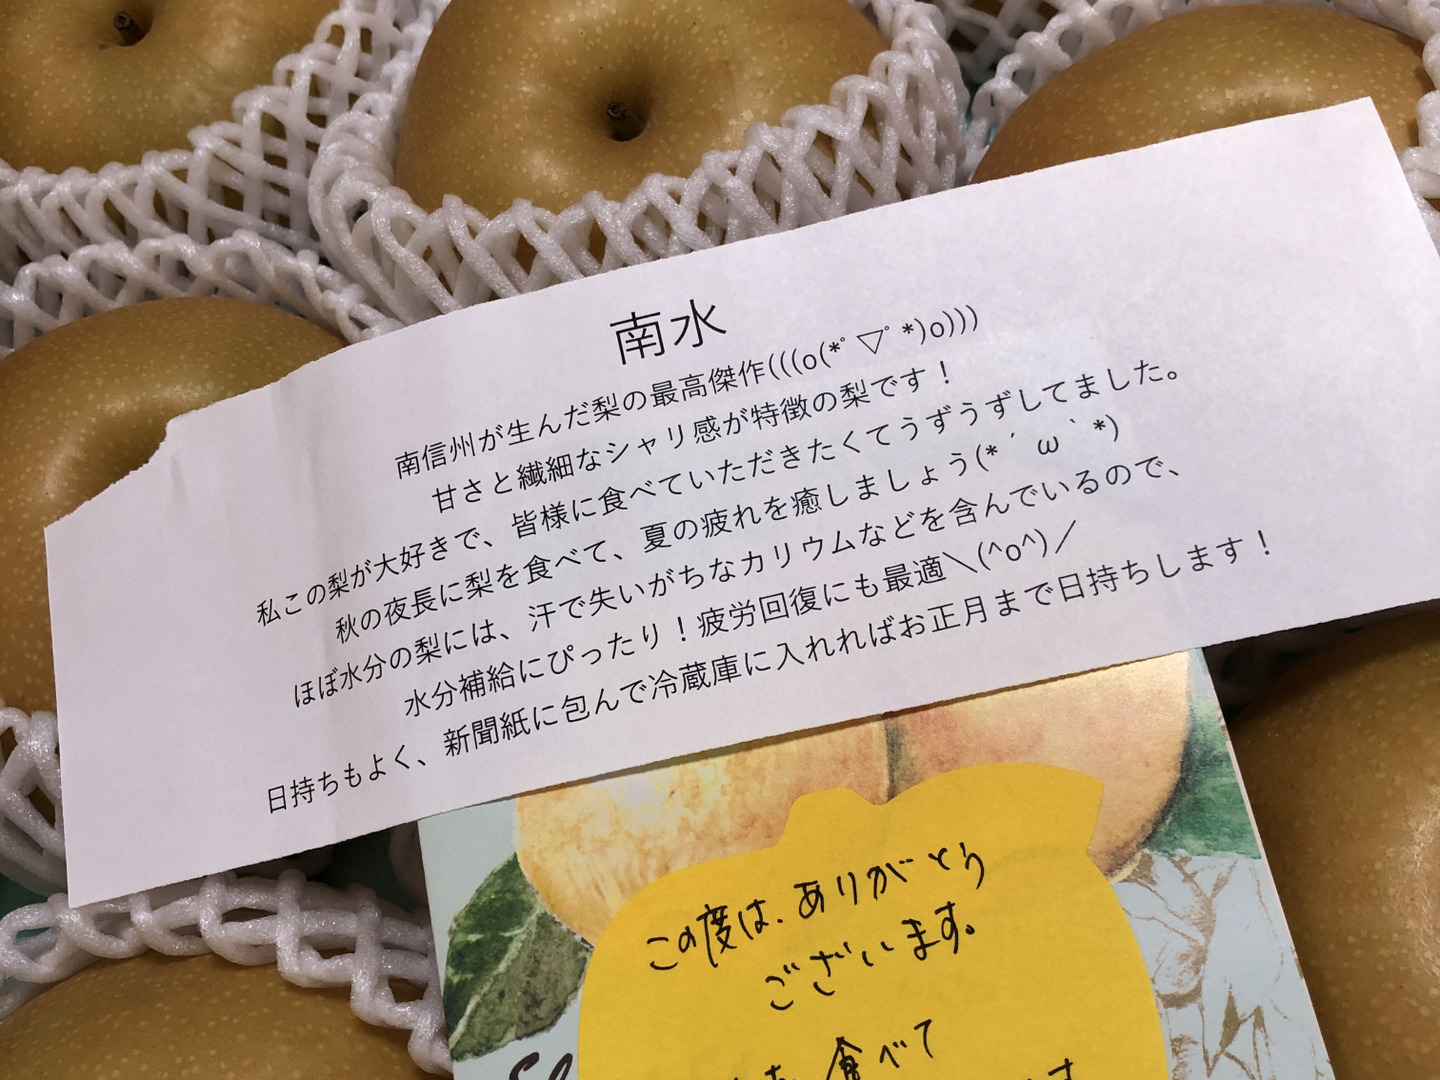 南水
南信州が生んだ梨の最高傑作(((o(*ﾟ▽ﾟ*)o)))
甘さと繊細なシャリ感が特徴の梨です！
私この梨が大好きで、皆様に食べていただきたくてうずうずしてました。
秋の夜長に梨を食べて、夏の疲れを癒しましょう(*´ω｀*)
ほぼ水分の梨には、汗で失いがちなカリウムなどを含んでいるので、
水分補給にぴったり！疲労回復にも最適＼(^o^)／
日持ちもよく、新聞紙に包んで冷蔵庫に入れればお正月まで日持ちします！
この度は、ありがとう
ございます。
食べて